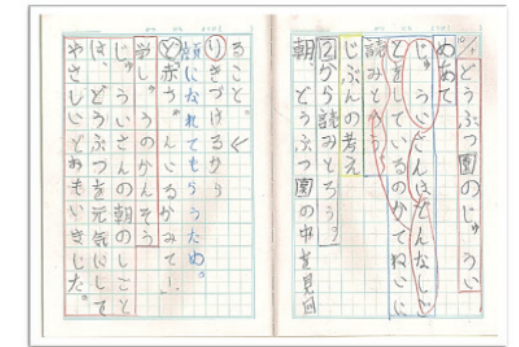 10/1どうぶつ園のじゅうい
めあて
じゅういさんはどんなしご
とをしているのかていねいに
読みとろう。
じぶんの考え
②から読みとろう。
朝、どうぶつ園の中を見回
ること。
りきづけるから
顔になれてもらうため。
ど赤ちゃんいるかみて
学しゅうのかんそう
じゅういさんの朝のしごと
は、どうぶつを元気にして
やさしいとおもいました。